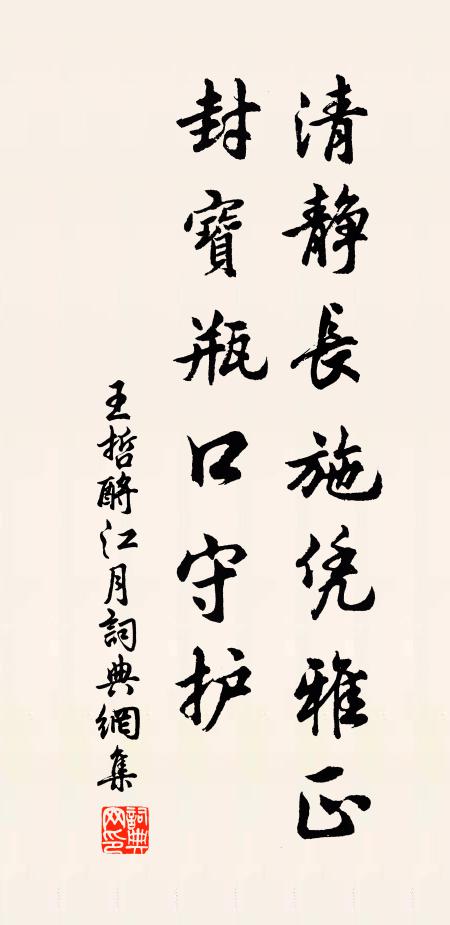 清靜長施凭雅正
封寶瓶口守护
王哲酹江月詞典網集
詞典网印